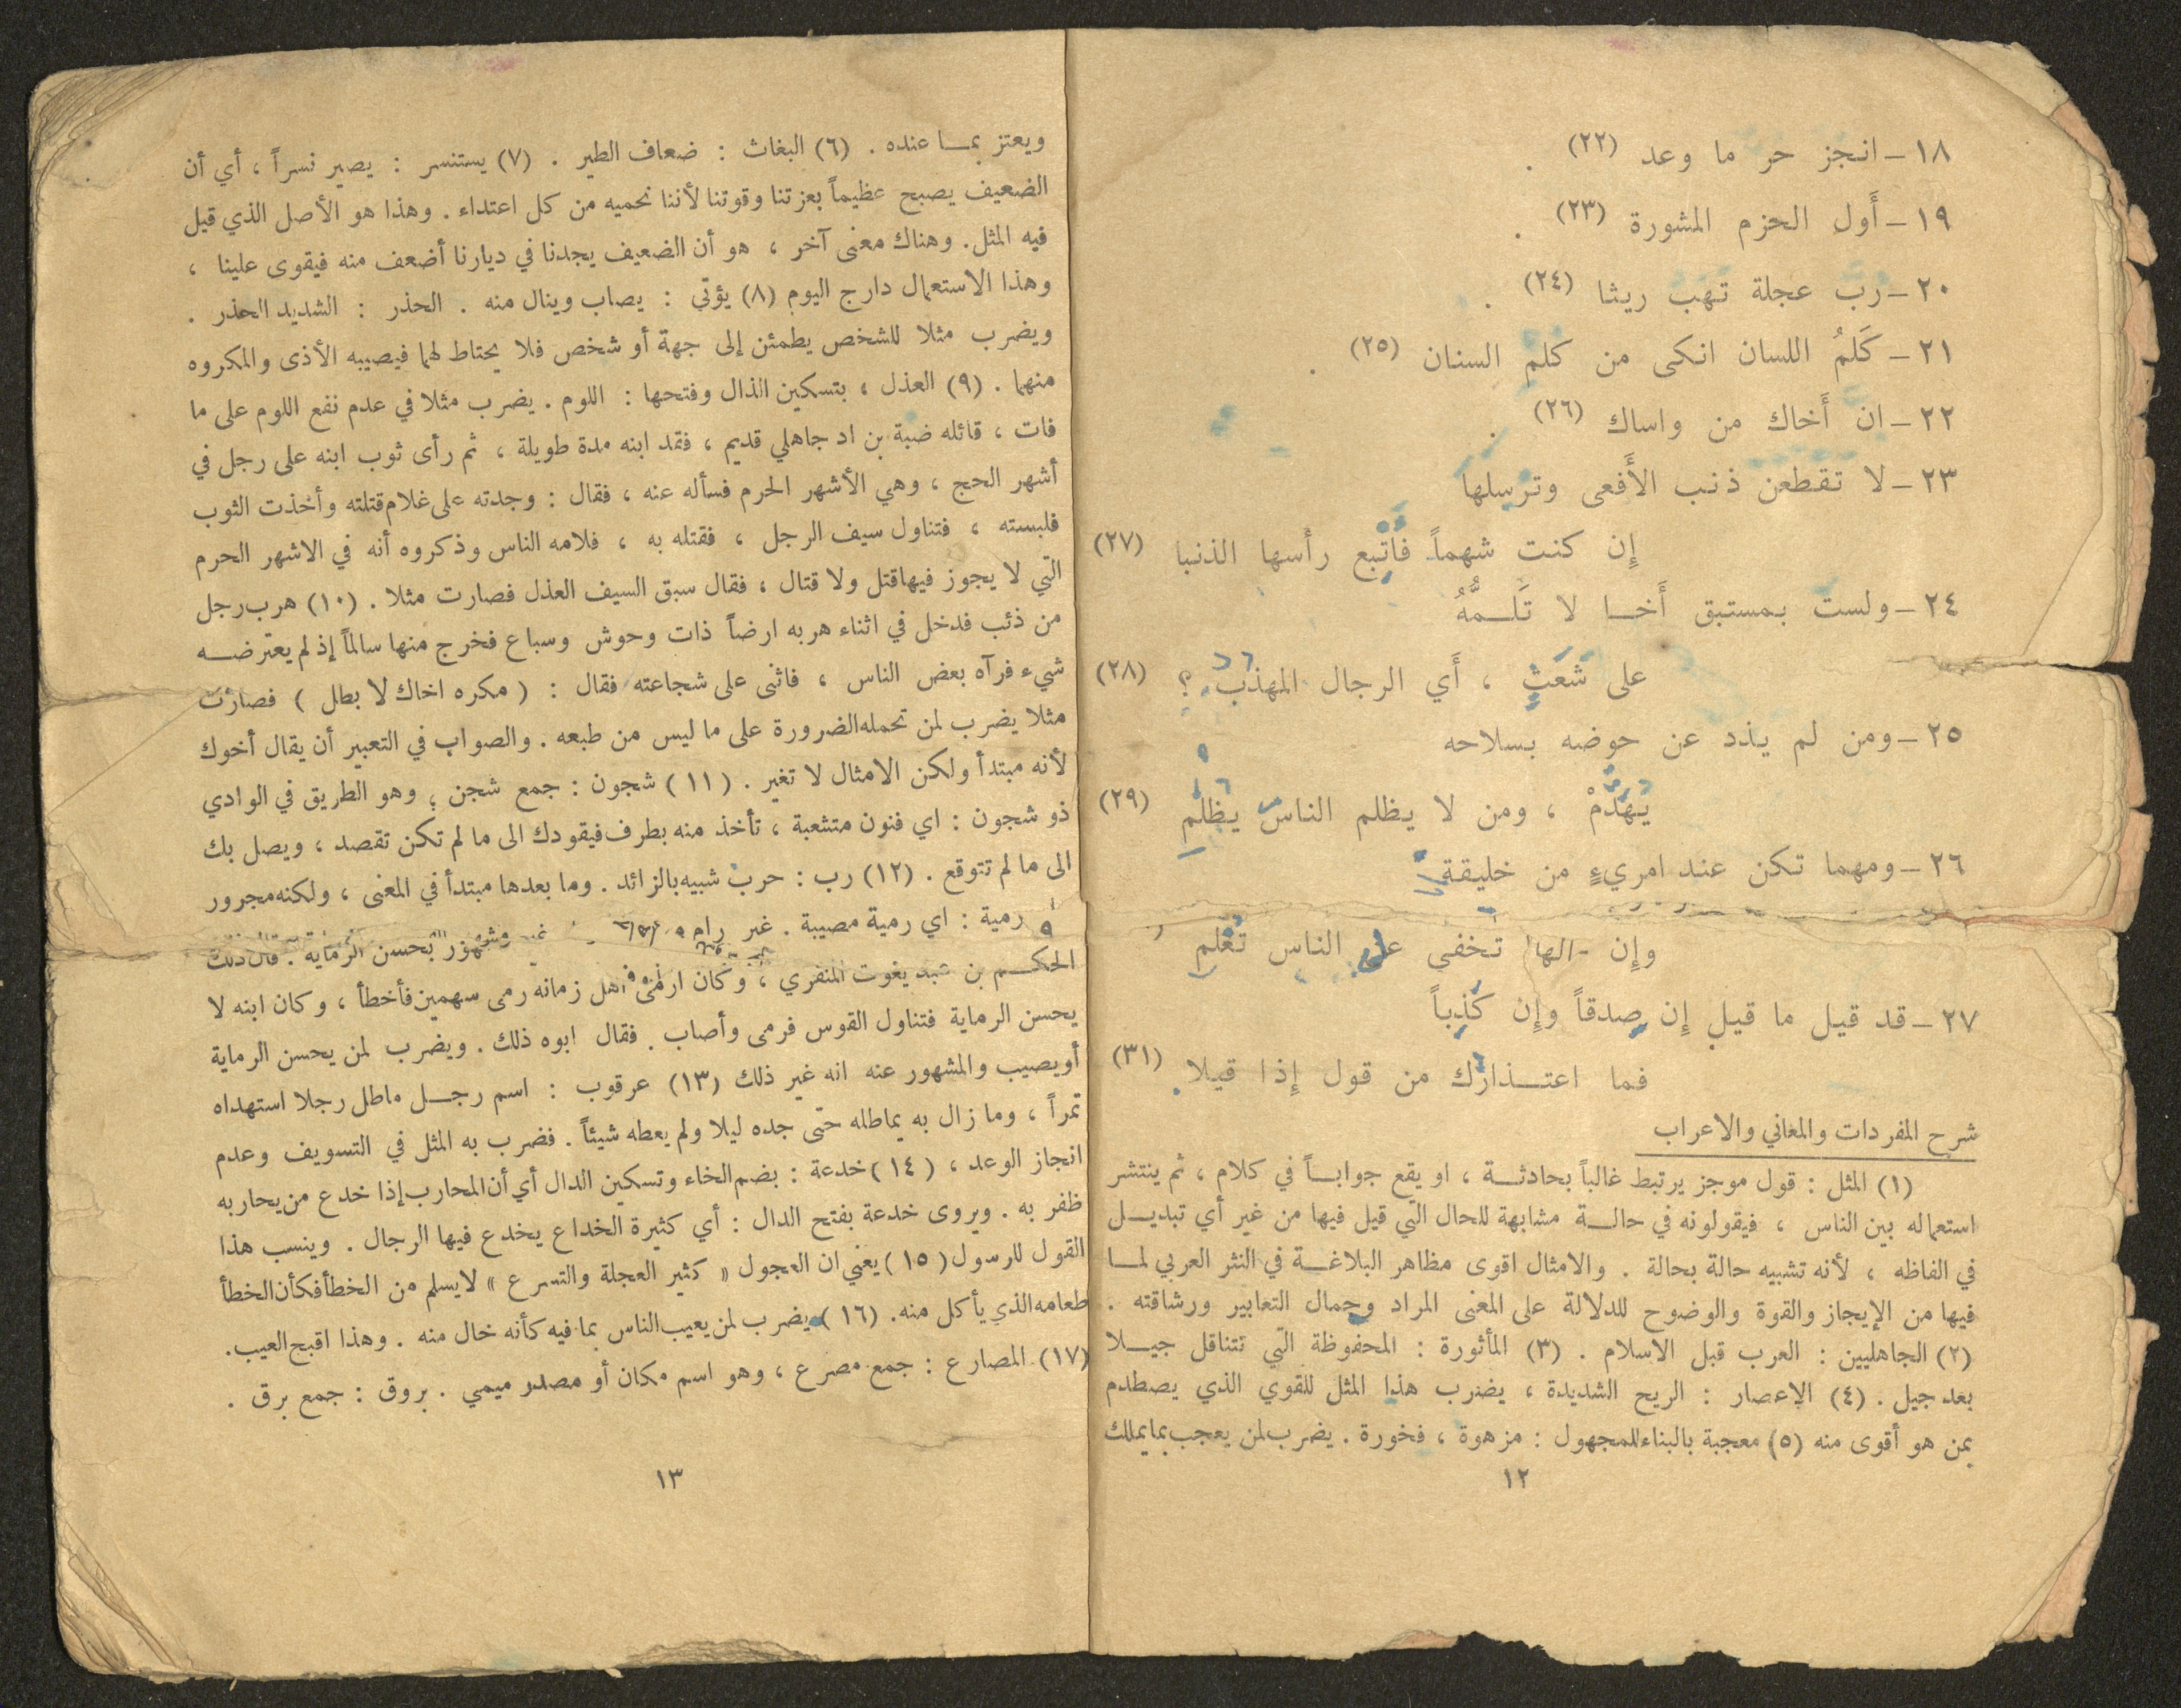 ١٨ – انجز حر ما وعد (٢٢) .
١٩ – أَول الحزم المشورة (٢٣) .
٢٠ – رب عجلة تهب ريثا (٢٤) .
٢١ – كَلمُ اللسان انكى من كلم السنان (٢٥) .
٢٢ – ان أَخاك من واساك (٢٦) .
٢٣ – لا تقطعن ذنب الأَفعى وترسلها
إِن كنت شهماً فأتبع رأسها الذنبا (٢٧)
٢٤ – ولست بمستبق أَخا لا تَلمُّهُ
على شَعَثٍ ، أَي الرجال المهذب ؟ (٢٨)
٢٥ – ومن لم يذد عن حوضه بسلاحه
يُهَدَّمْ ، ومن لا يظلم الناس يظلم (٢٩)
٢٦ – ومهما تكن عند امريءٍ من خليقة
وإِن خالها تخفى على الناس تُعْلم
٢٧ – قد قيل ما قيل إِن صدقاً وإِن كذباً
فما اعتذارك من قول إِذا قيلا (٣١)
شرح المفردات والمعاني والاعراب
(١) المثل : قول موجز يرتبط غالباً بحادثة ، او يقع جواباً في كلام ، ثم ينتشر
استعماله بين الناس ، فيقولونه في حالة مشابهة للحال التي قيل فيها من غير أي تبديل
في الفاظه ، لأنه تشبيه حالة بحالة . والامثال اقوى مظاهر البلاغة في النثر العربي لما
فيها من الإيجاز والقوة والوضوح للدلالة على المعنى المراد وجمال التعابير ورشاقته .
(٢) الجاهليين : العرب قبل الاسلام . (٣) المأثورة : المحفوظة التي تتناقل جيلا
بعد جيل . (٤) الإعصار : الريح الشديدة ، يضرب هذا المثل للقوي الذي يصطدم
بمن هو أقوى منه (٥) معجبة بالبناء للمجهول : مزهوة ، فخورة . يضرب لمن يعجب بما يملك
١٢
ويعتز بما عنده . (٦) البغاث : ضعاف الطير . (٧) يستنسر : يصير نسراً ، أي أن
الضعيف يصبح عظيماً بعزتنا وقوتنا لأننا نحميه من كل اعتداء . وهذا هو الأصل الذي قيل
فيه المثل . وهناك معنى آخر ، هو أن الضعيف يجدنا في ديارنا أضعف منه فيقوى علينا ،
وهذا الاستعمال دارج اليوم (٨) يؤتى : يصاب وينال منه . الحذر : الشديد الحذر .
ويضرب مثلا للشخص يطمئن إلى جهة أو شخص فلا يحتاط لهما فيصيبه الأذى والمكروه
منهما . (٩) العذل ، بتسكين الذال وفتحها : اللوم . يضرب مثلا في عدم نفع اللوم على ما
فات ، قائله ضبة بن اد جاهلي قديم ، فقد ابنه مدة طويلة ، ثم رأى ثوب ابنه على رجل في
أشهر الحج ، وهي الأشهر الحرم فسأله عنه ، فقال : وجدته على غلام قتلته وأخذت الثوب
فلبسته ، فتناول سيف الرجل ، فقتله به ، فلامه الناس وذكروه أنه في الاشهر الحرم
التي لا يجوز فيها قتل ولا قتال ، فقال سبق السيف العذل فصارت مثلا . (١٠) هرب رجل
من ذئب فدخل في اثناء هربه ارضاً ذات وحوش وسباع فخرج منها سالماً إذ لم يعترضه
شيء فرآه بعض الناس ، فاثنى على شجاعته فقال : ( مكره اخاك لا بطل ) فصارت
مثلا يضرب لمن تحمله الضرورة على ما ليس من طبعه . والصواب في التعبير أن يقال أخوك
لأنه مبتدأ ولكن الامثال لا تغير . (١١) شجون : جمع شجن ، وهو الطريق في الوادي
ذو شجون : اي فنون متشعبة ، تأخذ منه بطرف فيقودك الى ما لم تكن تقصد ، ويصل بك
الى ما لم تتوقع . (١٢) رب : حرف شبيه بالزائد . وما بعدها مبتدأ في المعنى ، ولكنه مجرور
رمية : اي رمية مصيبة . غير رام غير مشهور بحسن الرماية . قال ذلك
الحكم بن عبد يغوث المنقري ، وكان ارمى اهل زمانه رمى سهمين فأخطأ ، وكان ابنه لا
يحسن الرماية فتناول القوس فرمى وأصاب . فقال ابوه ذلك . ويضرب لمن يحسن الرماية
أو يصيب والمشهور عنه انه غير ذلك (١٣) عرقوب : اسم رجل ماطل رجلا استهداه
تمراً ، وما زال به يماطله حتى جده ليلا ولم يعطه شيئاً . فضرب به المثل في التسويف وعدم
انجاز الوعد ، (١٤) خدعة : بضم الخاء وتسكين الدال أي أن المحارب إذا خدع من يحاربه
ظفر به . ويروى خدعة بفتح الدال : أي كثيرة الخداع يخدع فيها الرجال . وينسب هذا
القول للرسول (١٥) يعني ان العجول « كثير العجلة والتسرع » لا يسلم من الخطأ فكأن الخطأ
طعامه الذي يأكل منه . (١٦) يضرب لمن يعيب الناس بما فيه كأنه خال منه . وهذا اقبح العيب .
(١٧) المصارع : جمع مصرع ، وهو اسم مكان أو مصدر ميمي . بروق : جمع برق .
١٣